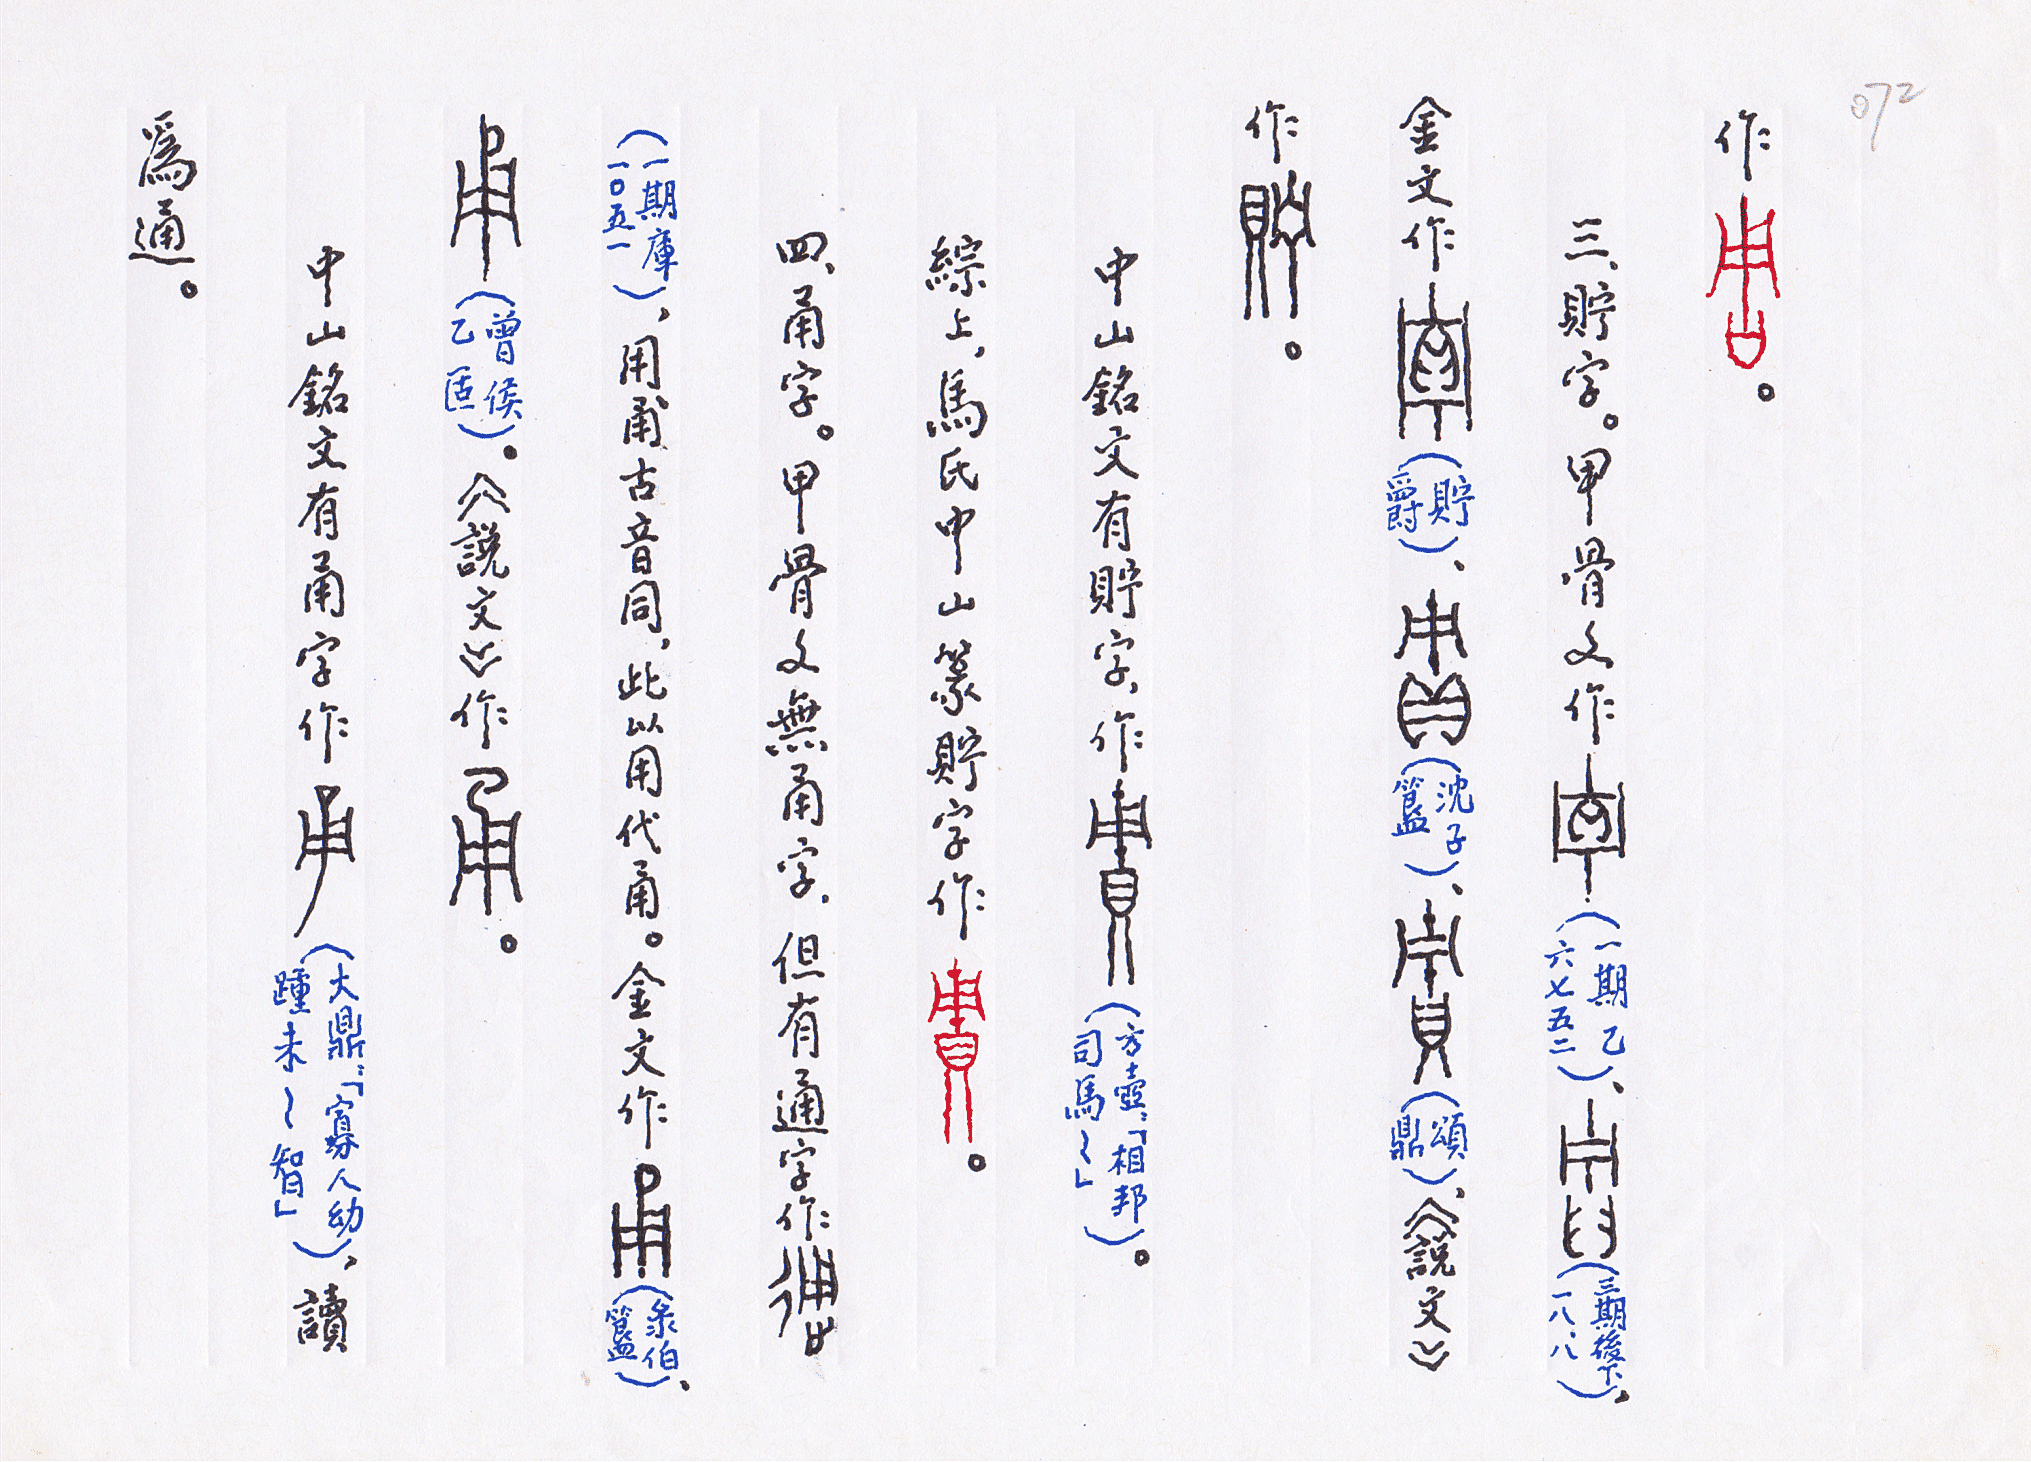 072
作。
三、貯字。甲骨文作（一期乙六七五二）、（三期後下一八.八），
金文作（貯爵）、（沈子簋）、（頌鼎），《說文》
作。
中山銘文有貯字，作（方壺：「相邦司馬～」）。
綜上，馬氏中山篆貯字作。
四、甬字。甲骨文無甬字，但有通字作
（一期庫一〇五一），用甬古音同，此以用代甬。金文作（彔伯簋）、
（曾侯乙匜）。《說文》作。
中山銘文有甬字作（大鼎：「寡人幼踵未～智」），讀
爲通。